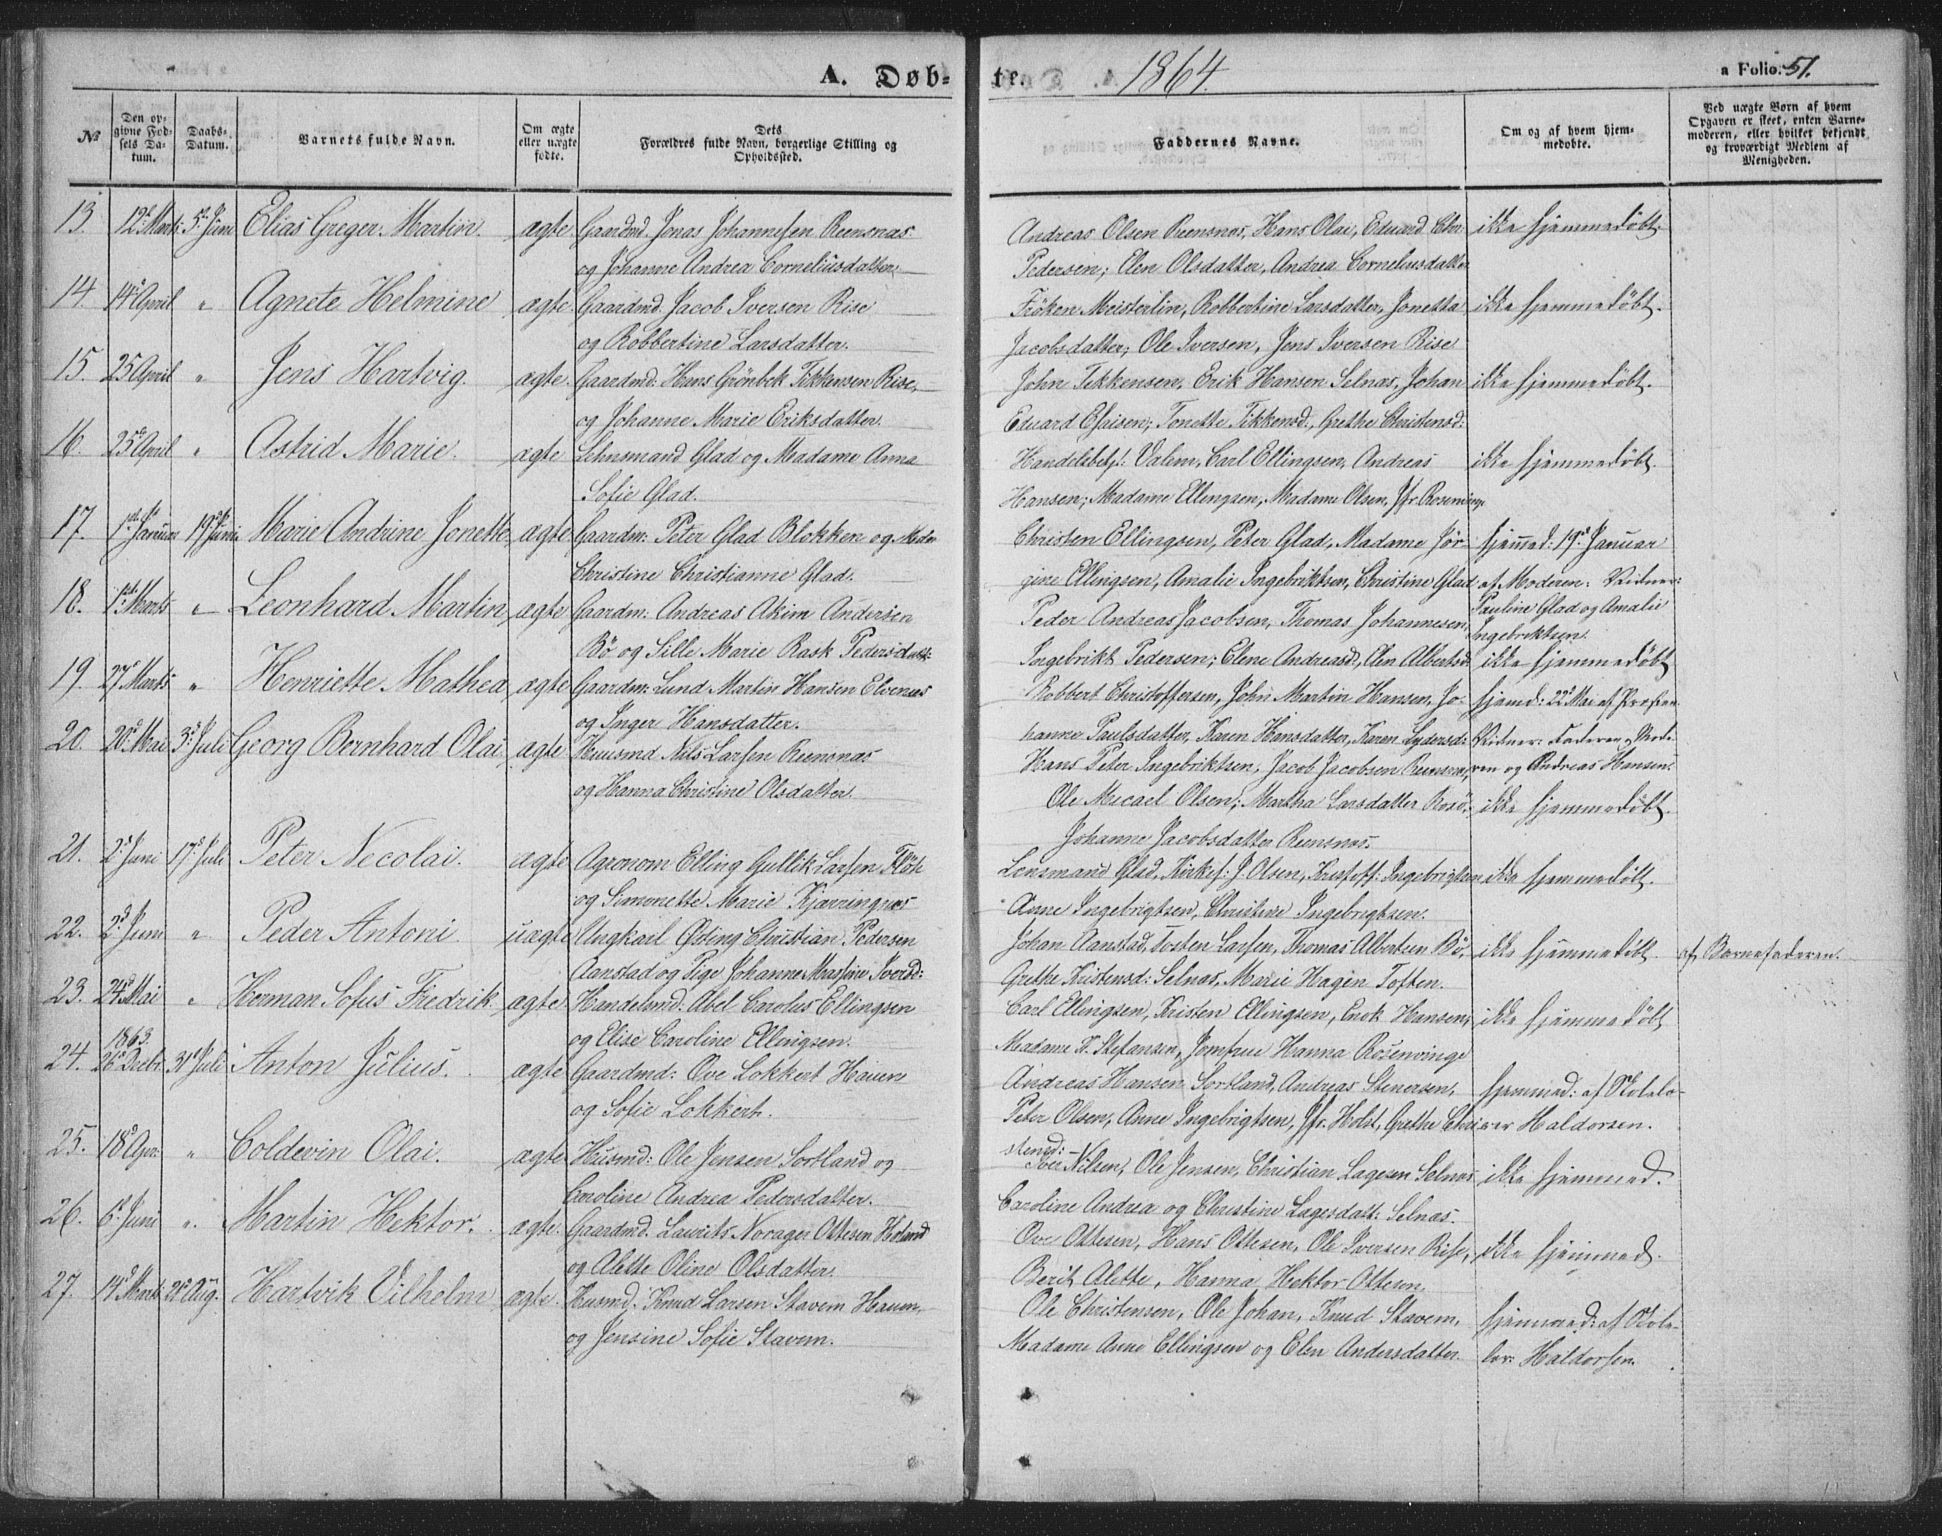 A. Døbte. 1864. a Folio. 51.
№ | Den opgivne Fødsels Datum. | Daabs-Datum. | Barnets fulde Navn. | Om ægte eller uægte fødte. | Dets Forældres fulde Navn, borgerlige Stilling og Opholdssted. | Faddernes Navne. | Om og af hvem hjemmedøbte. | Ved uægte Børn af hvem Opgaven er skeet, enten Barnemoderen, eller hvilket bekjendt og troværdigt Medlem af Menigheden.
13. 12te Marts 5te Juni Elias Greger Martin. ægte Gaardmd. Jonas Johannesen Reensnæs
og Johanne Andrea Corneliusdatter.
Andreas Olsen Reensnæs, Hans Olai, Eduard Chr. ikke hjemmedøbt.
Pedersen; Elen Olsdatter, Andrea Corneliusdatter
14. 14de April " Agnete Helmine ægte Gaardmd. Jacob Iversen Rise
og Robbertine Larsdatter.
Frøken Meisterlin, Robbertine Larsdatter, Jonetta ikke hjemmedøbt.
Jacobsdatter; Ole Iversen, Jens Iversen Rise
15. 25 April " Jens Hartvig. ægte. Gaardmd. Hans Grönbek Tikkensen Rise,
og Johanne Marie Eriksdatter.
John Tikkensen, Erik Hansen Selnæs, Johan ikke hjemmedøbt.
Eduard Esaisen; Tonette Tikkensd., Grethe Christensd:
16. 25de April " Astrid Marie. ægte Lehnsmand Glad og Madame Anna
Sofie Glad.
Handelsbetj: Valem, Carl Ellingsen, Andreas ikke hjemmedøbt.
Hansen; Madame Ellingsen, Madame Olsen, Jfr Rosenvinge
17. 1ste Januar 19de Juni Marie Andrine Jonette, ægte Gaardm: Peter Glad Blokken og
Christine Christianne Glad.
Christen Ellingsen, Peter Glad, Madame Jør- hjemed: 19de Januar
gine Ellingsen, Amalie Ingebrigtsen, Christine Glad af Moderen. Vidner:
18. 1ste Marts " Leonhard Martin, ægte Gaardm: Andreas Akim Andersen
Bø og Sille Marie Rask Pedersdatt:
Peder Andreas Jacobsen, Thomas Johannesen, Pauline Glad og Amalie
Ingebriktsen.
Ingebrikt Pedersen; Elene Andreasd., Elen Albertsd. ikke hjemmedøbt
19. 27de Marts " Henriette Mathea, ægte Gaardm: Lund Martin Hansen Elvenes
og Inger Hansdatter.
Robbert Christoffersen, John Martin Hansen, Jo- hjemd: 22de Mai af Præsten
hanne Paulsdatter, Karen Hansdatter, Karen Lydersd: Vidner: Faderen, Mode-
20. 20de Mai 3de Juli Georg Bernhard Olai, ægte Huusmd Nils Larsen Reensnæs
og Hanna Christine Olsdatter.
Hans Peter Ingebriktsen, Jacob Jacobsen Reensnæs, ren og Andreas Hansen.
Ole Micael Olsen; Martha Larsdatter ikke hjemmedøbt.
Johanne Jacobsdatter Reensnæs.
21. 2de Juni 17de Juli Peter Necolai. ægte Agronom Elling Gullik Larsen
og Simonette Marie Kjærringnæs
Lensmand Glad, Kirkes: J. Olsen, Kristoff: Ingebrigtsen ikke hjemmedøbt.
Anne Ingebrigtsen, Christine Ingebrigtsen.
22. 2de Juni " Peder Antoni uægte Ungkarl Østing Christian Pedersen
Aanstad og Pige Johanne Martine Iversd:
Johan Aanstad, Tosten Larsen, Thomas Albertsen Bö, ikke hjemmedøbt. af Barnefaderen.
Grethe Kristensd: Selnæs, Marie Hagen Toften.
23. 24de Mai " Herman Sofus Fredrik, ægte Handelsmd: Abel Carolus Ellingsen
og Elise Caroline Ellingsen.
Carl Ellingsen, Kristen Ellingsen, Enok Hansen, ikke hjemmedøbt
Madame K. Stefansen, Jomfrue Hanna Rosenvinge
1863.
24. 26de Decbr 31de Juli Anton Julius. ægte Gaardmd: Ove Lokkert Haven
og Sofie Lokkert.
Andreas Hansen Sortland, Andreas Stenersen, hjemmed: af Skolelæ-
Peter Olsen, Anne Ingebrigtsen, Jfr. Holst, Grethe Chri- rer Haldorsen.
stensd:
25. 18de Apr. " Coldevin Olai. ægte Husmd: Ole Jensen Sortland og
Caroline Andrea Pedersdatter.
Iver Nilsen, Ole Jensen, Christian Lagesen Selnæs ikke hjemmed.
Caroline Andrea og Christine Lagesdatt: Selnæs.
26. 6te Juni " Martin Hektor. ægte. Gaardmd. Laurits Norager Ottesen Holand
og Alette Oline Olsdatter.
Ove Ottesen, Hans Ottesen, Ole Iversen Rise, ikke hjemmed.
Berit Alette, Hanna, Hektor Ottesen.
27. 14de Marts 21de Aug. Hartvik Vilhelm ægte. Husmd. Knud Larsen Stavem Haven,
og Jensine Sofie Stavem.
Ole Christensen, Ole Johan, Knud Stavem, hjemmed: af Skole-
Madame Anne Ellingsen og Elen Andersdatter. lær: Haldorsen.